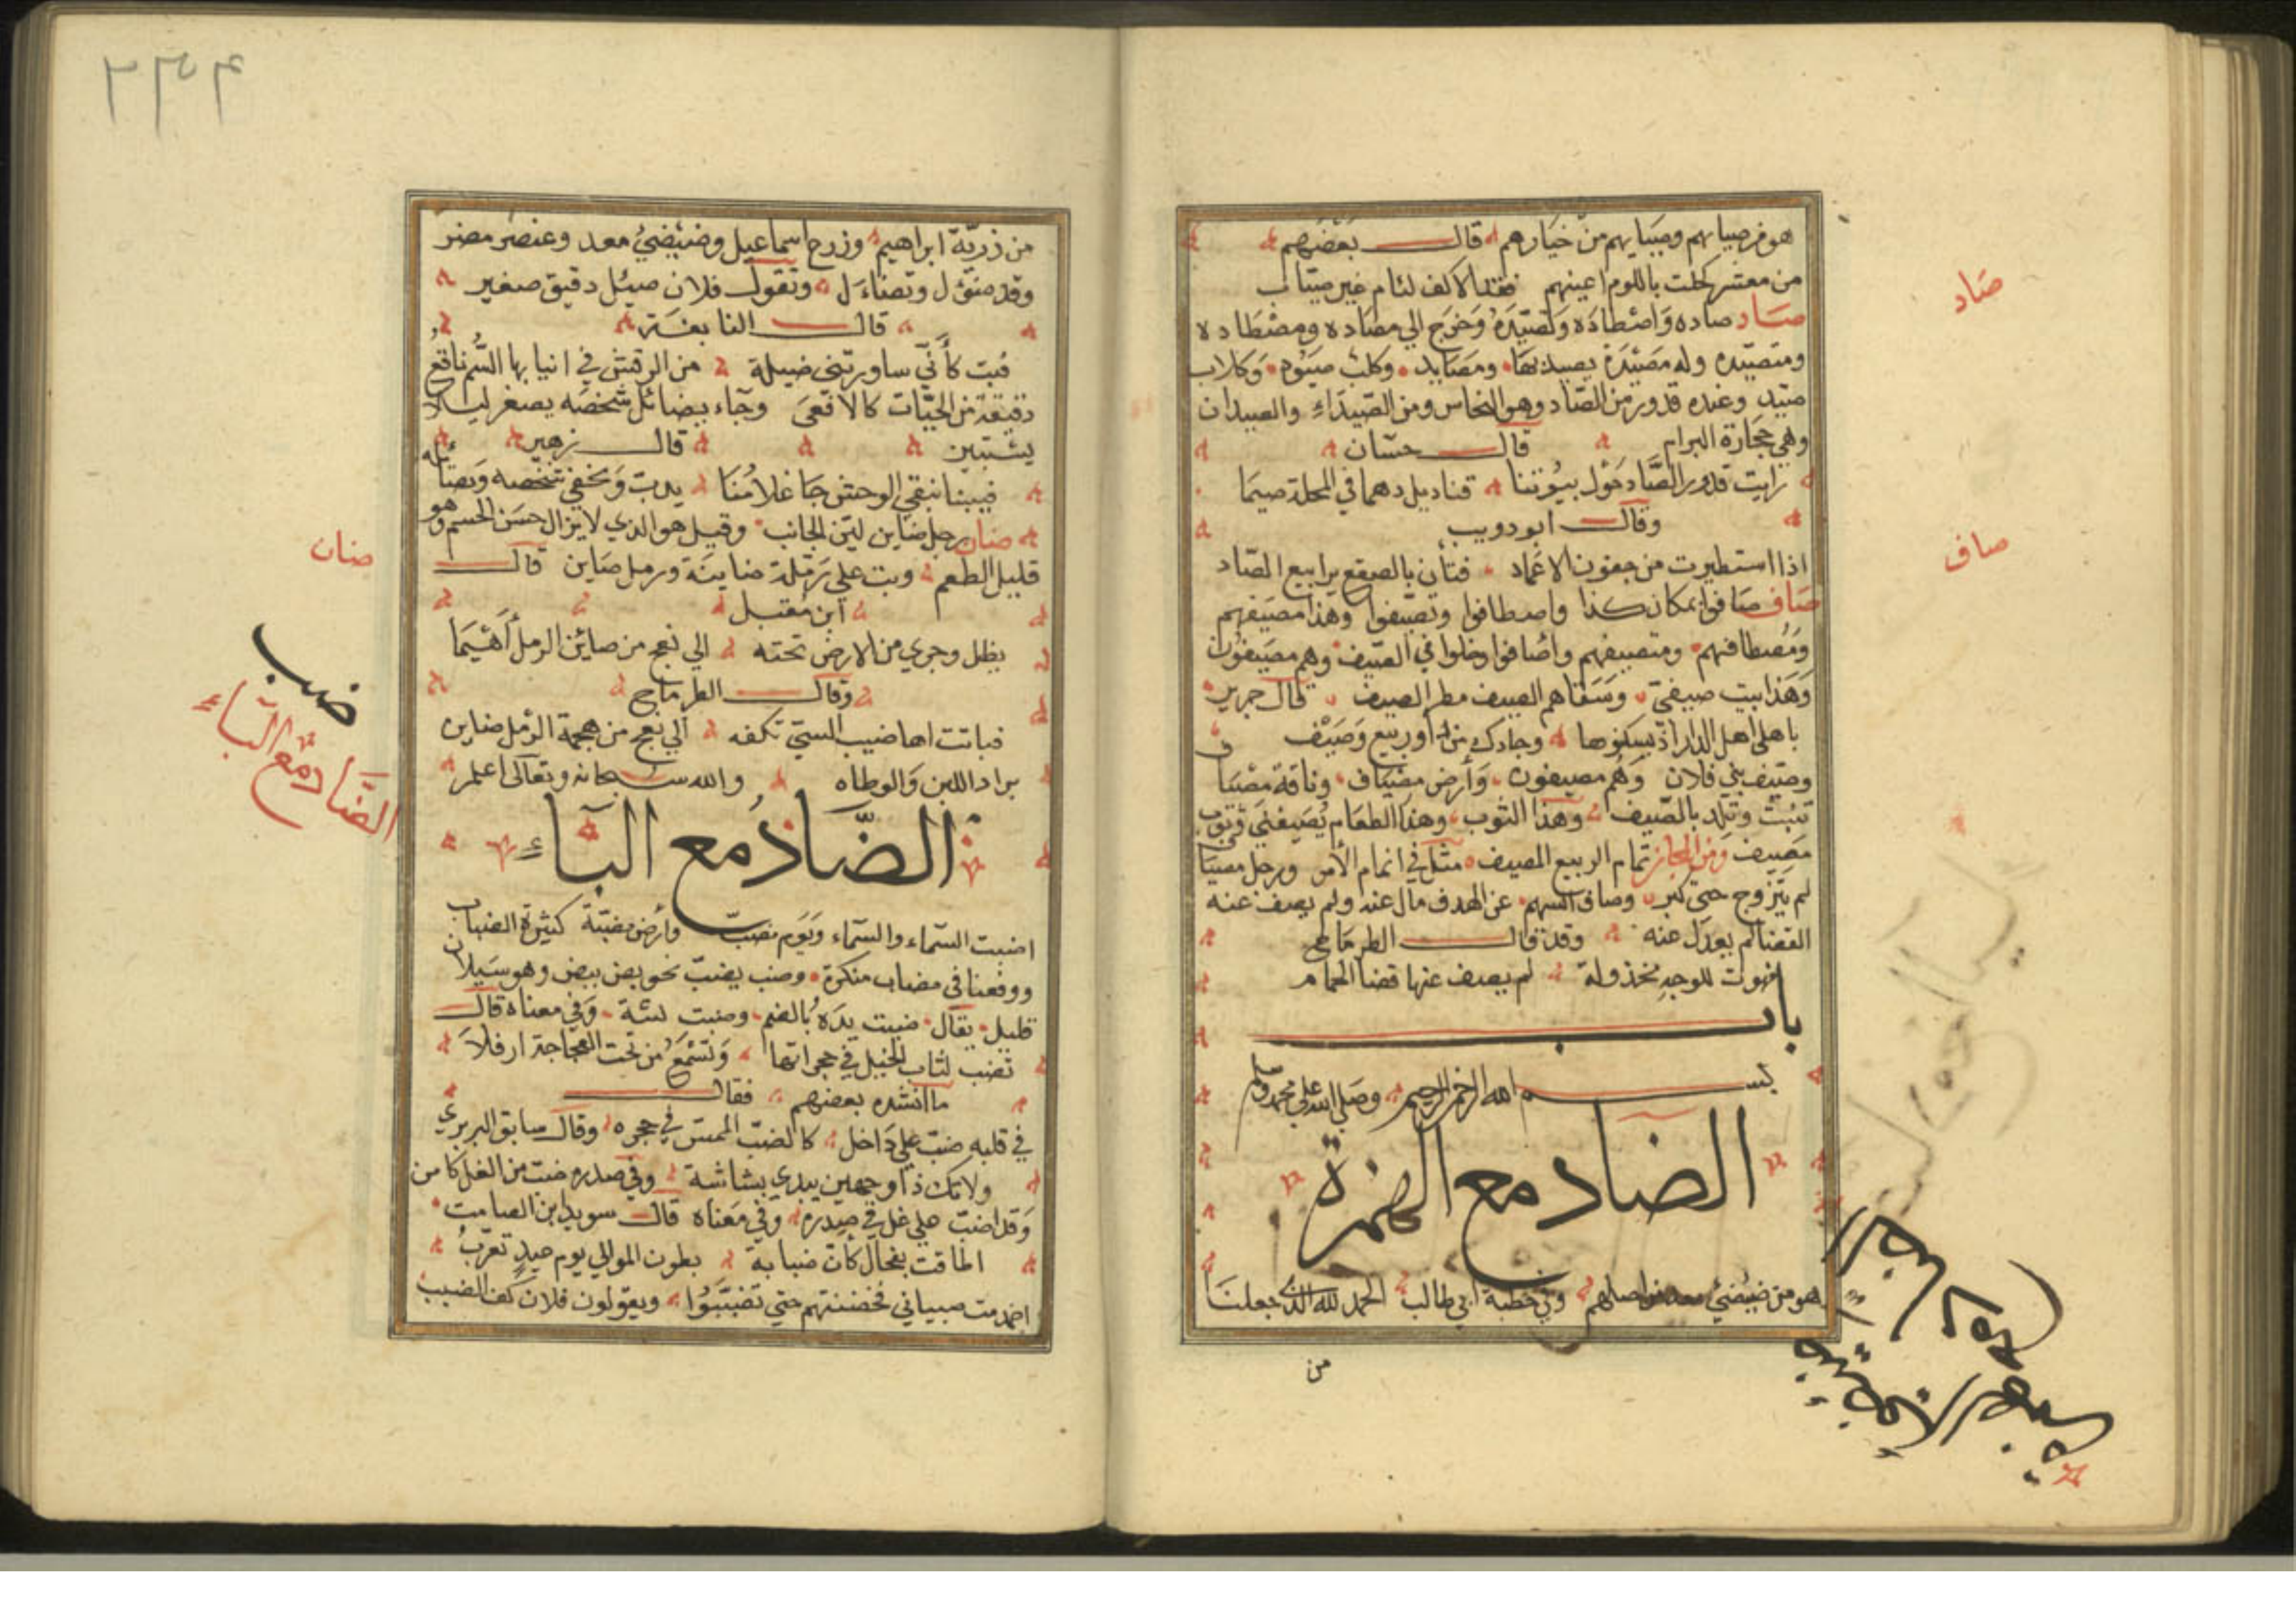 هو من صيابهم وصيابهم من خيارهم قال بعضهم
من معشر كحلت باللوم اعينهم فقد الاكف لئام غير صياب
صاد صاده واصطاده وتصيده وخرج الي مصاده ومصطاده
ومتصيده وله مصيدة يصيد بها ومصايد وكلب صيود وكلاب
صيد وعنده قدور من الصاد وهو النحاس ومن الصيداء والصيدان
وهي حجارة البرام قال حسان
رايت قدور الصاد حول بيوتنا قنابل دهما في المحلة صيما
وقال ابو دويب
اذا استطيرت من جفون الاغماد فتأن بالصقع يرابيع الصاد
صاف صافوا بمكان كذا واصطافوا وتصيفوا وهذا مصيفهم
ومصطافهم ومتصيفهم واصافوا دخلوا في الصيف وهم مصيفون
وهذا بيت صيفي وسقاهم الصيف مطر الصيف قال جرير
باهلي اهل الدار اذ يسكنوها وجادك من دار ربيع وصيف
وصيف بني فلان وهم مصيفون وأرض مصياف وناقة مصياف
تنبت وتلد بالصيف وهذا الثوب وهذا الطعام يصيفني
مصيف ومن المجاز تمام الربيع الصيف مثل في اتمام الأمر ورجل مصياف
لم يتزوج حتي كبر وصاف السهم عن الهدف مال عنه ولم يصف عنه
القضا لم يعدل عنه وقد قال الطرماح
فهوت للوجه مخذولة لم يصف عنها قضا الحمام
باب
بسم الله الرحمن الرحيم وصلي الله علي محمد وسلم
الضاد مع الهمزة
هو من ضيضئي معد من اصلهم وفي خطبة ابي طالب الحمد لله الذي جعلنا
من
صاد
صاف
من ذرية ابراهيم وزرع اسماعيل وضيضئ معد وعنصر مضر
وقد ضؤل وتضاءل وتقول فلان ضيئل دقيق صغير
قال النابغة
فبت كأني ساورتني ضيلة من الرقش في انيابها السم ناقع
دقيقة من الحيات كالافعى وجاء يضائل شخصه يصغر ليلا
يستبين قال زهير
فبينا نبقي الوحش جا غلامنا يدب ويخفي شخصه ويضائله
ضان رجل ضاين لين الجانب وقيل هو الذي لا يزال حسن الجسم وهو
قليل الطعم وبت علي رملة ضاينة ورمل ضاين قال
ابن مقبل
يظل وجري من الارض تحته الي نعج من ضائن الرمل أهيما
وقال الطرماح
فباتت اهاضيب السمي تكفه الي نعج من هجمة الرمل ضاين
يراد اللين والوطاه والله سبحانه وتعالى اعلم
الضاد مع الباء
اضبت السماء والسماء ويوم مضب وأرض مضبة كثيرة الضباب
ووقعنا في مضاب منكرة وضب يضب نحو بض يبض وهو سيلان
قليل يقال ضبت يده بالضم وضبت لثة وفي معناه قال
تضب لثات الخيل في حجراتها وتسمع من تحت العجاجة ازفلا
ما انشده بعضهم فقال
في قلبه ضب علي داخل كالضب في حجره وقال سابق البربري
ولا تك ذا وجهين يبدي بشاشة وفي صدره ضب من الغل كامن
وقد اضب علي غل في صدره وفي معناه قال سويد ابن الصامت
اطافت بفحال كأن ضبابه بطون الموالي يوم عيد
صبياني حتي تضببوا ويقولون فلان كف الضب
ضان
ضب
الضاد مع الباء
٢٣٤